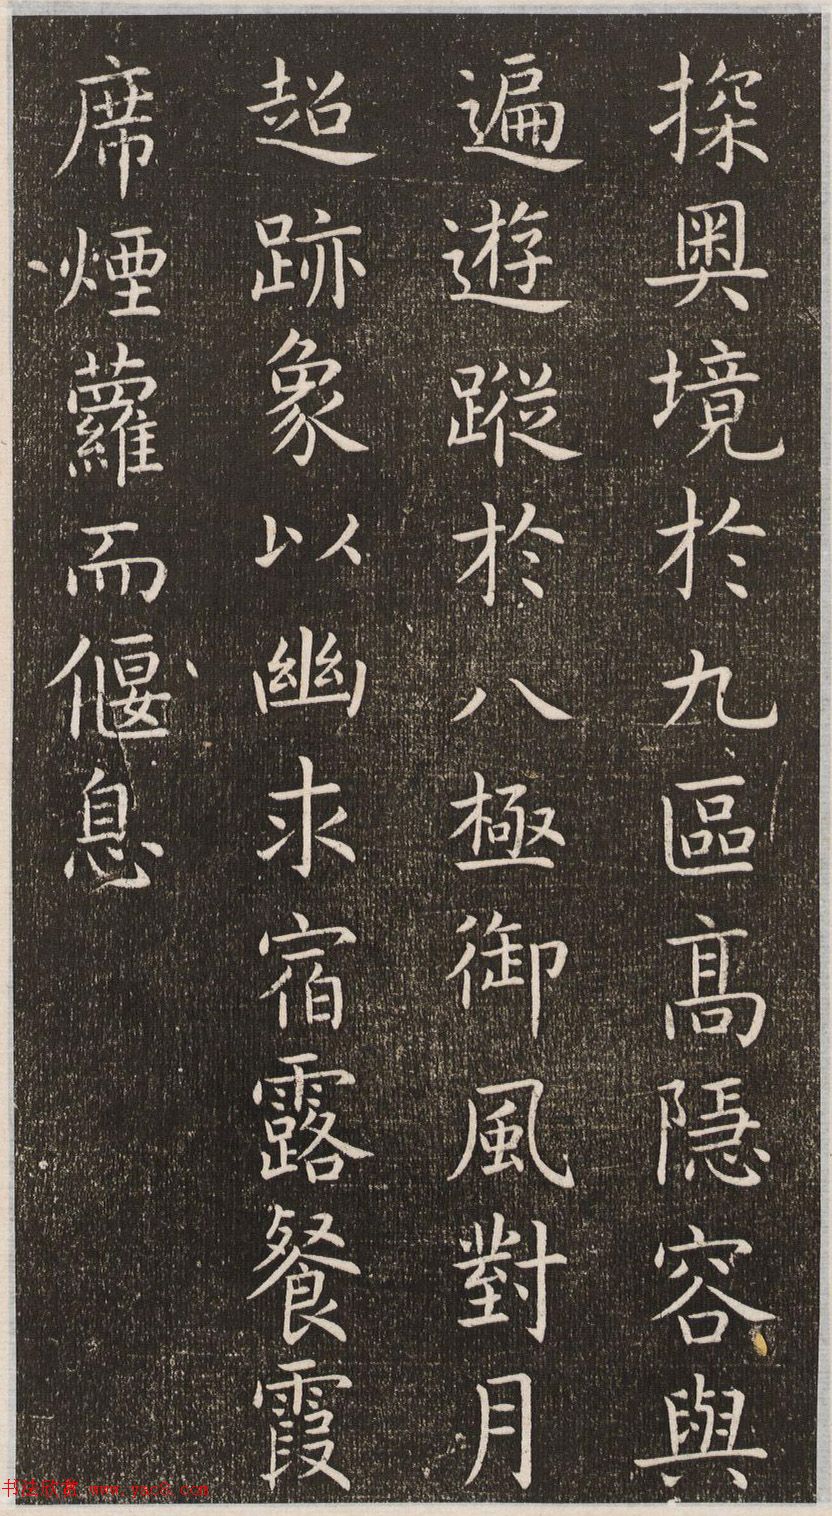 探奧境於九區高隱容與
遍遊蹤於八極御風對月
超跡象以幽求宿露餐霞
席煙蘿而偃息
书法欣赏 www.yac8.com